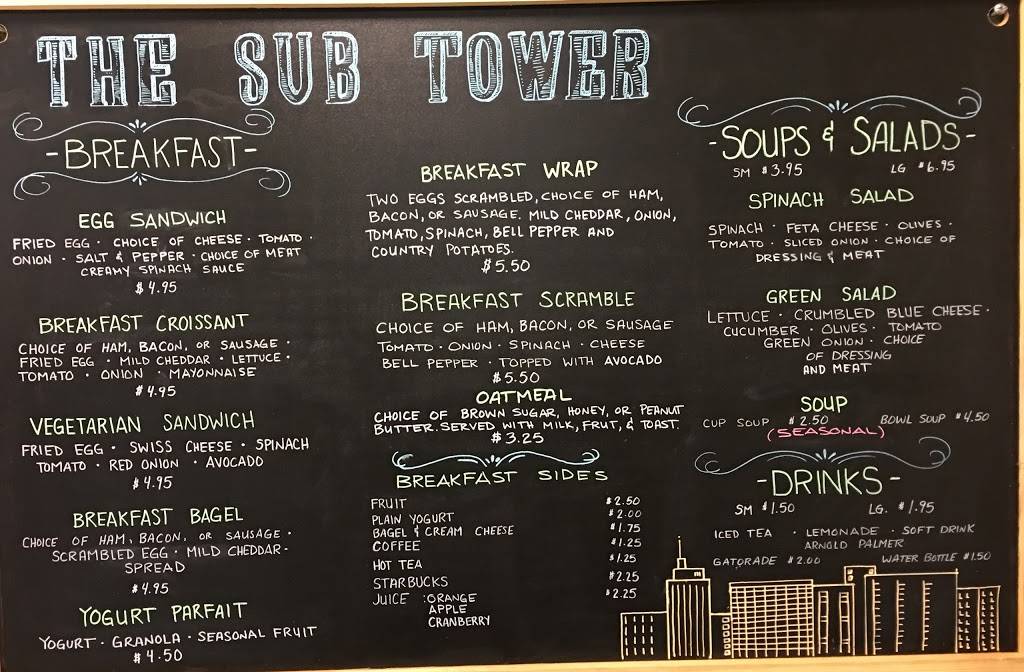 THE SUB TOWER
- BREAKFAST -
EGG SANDWICH
FRIED EGG · CHOICE OF CHEESE · TOMATO ·
ONION · SALT & PEPPER · CHOICE OF MEAT
CREAMY SPINACH SAUCE
$4.95
BREAKFAST CROISSANT
CHOICE OF HAM, BACON, OR SAUSAGE ·
FRIED EGG · MILD CHEDDAR · LETTUCE ·
TOMATO · ONION · MAYONNAISE
$4.95
VEGETARIAN SANDWICH
FRIED EGG · SWISS CHEESE · SPINACH
TOMATO · RED ONION · AVOCADO
$4.95
BREAKFAST BAGEL
CHOICE OF HAM, BACON, OR SAUSAGE ·
SCRAMBLED EGG · MILD CHEDDAR ·
SPREAD
$4.95
YOGURT PARFAIT
YOGURT · GRANOLA · SEASONAL FRUIT
$4.50
BREAKFAST WRAP
TWO EGGS SCRAMBLED, CHOICE OF HAM,
BACON, OR SAUSAGE. MILD CHEDDAR, ONION,
TOMATO, SPINACH, BELL PEPPER AND
COUNTRY POTATOES.
$5.50
BREAKFAST SCRAMBLE
CHOICE OF HAM, BACON, OR SAUSAGE
TOMATO · ONION · SPINACH · CHEESE
BELL PEPPER · TOPPED WITH AVOCADO
$5.50
OATMEAL
CHOICE OF BROWN SUGAR, HONEY, OR PEANUT
BUTTER. SERVED WITH MILK, FRUT, & TOAST.
$3.25
BREAKFAST SIDES
FRUIT $2.50
PLAIN YOGURT $2.00
BAGEL & CREAM CHEESE $1.75
COFFEE $1.25
HOT TEA $1.25
STARBUCKS $2.25
JUICE : ORANGE $2.25
APPLE
CRANBERRY
- SOUPS & SALADS -
SM $3.95 LG $6.95
SPINACH SALAD
SPINACH · FETA CHEESE · OLIVES ·
TOMATO · SLICED ONION · CHOICE OF
DRESSING & MEAT
GREEN SALAD
LETTUCE · CRUMBLED BLUE CHEESE ·
CUCUMBER · OLIVES · TOMATO
GREEN ONION · CHOICE
OF DRESSING
AND MEAT
SOUP
CUP SOUP $2.50 BOWL SOUP $4.50
(SEASONAL)
- DRINKS -
SM $1.50 LG. $1.95
ICED TEA · LEMONADE · SOFT DRINK
ARNOLD PALMER
GATORADE $2.00 WATER BOTTLE $1.50